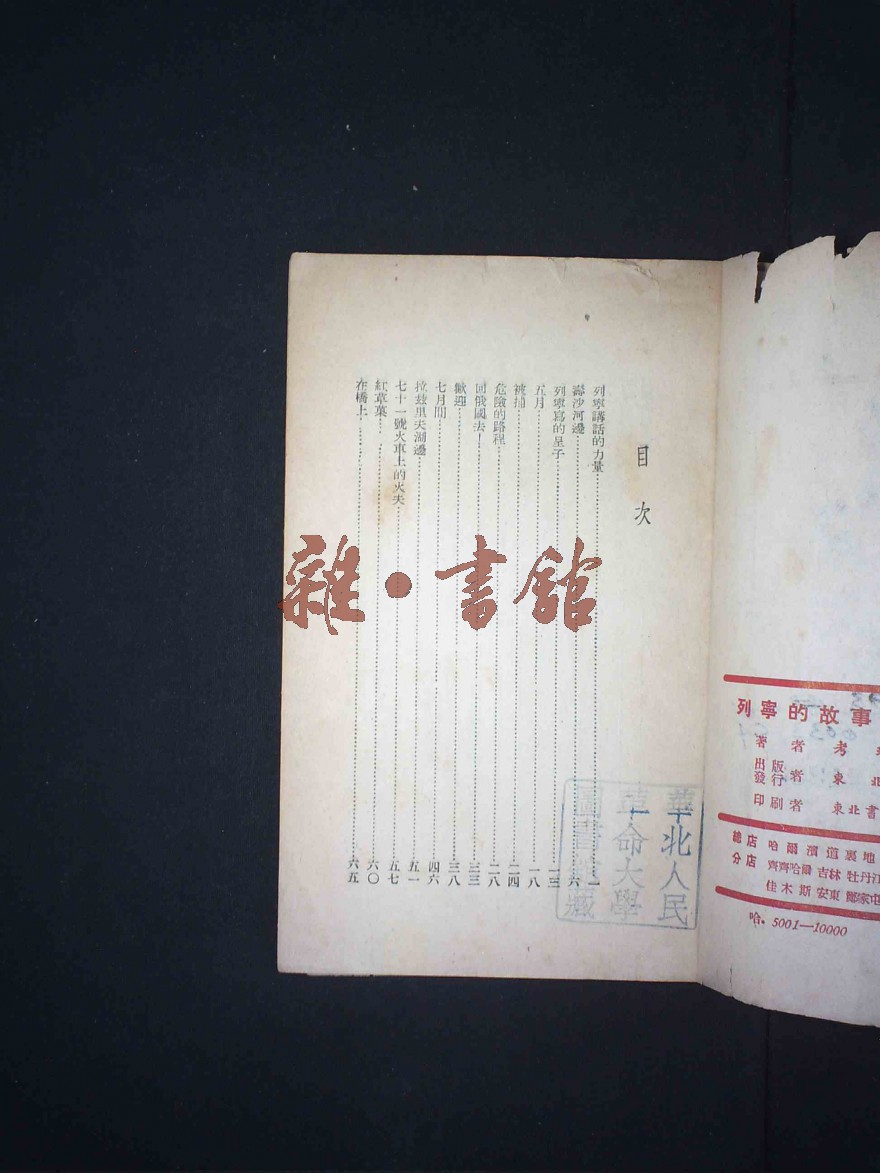 目次
列寧講話的力量 一
壽沙河邊 六
列寧寫的呈子 一三
五月 一八
被捕 二四
危險的路程 二八
回俄國去！ 三三
歡迎 三八
七月間 四六
拉茲里夫湖邊 五一
七十一號火車上的火夫 五七
紅草菓 六〇
在橋上 六五
華北人民
革命大學
圖書館藏
雜·書館
列寧的故事
著者 考
出版
發行者 東北
印刷者 東北書
總店 哈爾濱道裏地
分店 齊齊哈爾 吉林 牡丹江
佳木斯 安東 鄭家屯
哈. 5001—10000